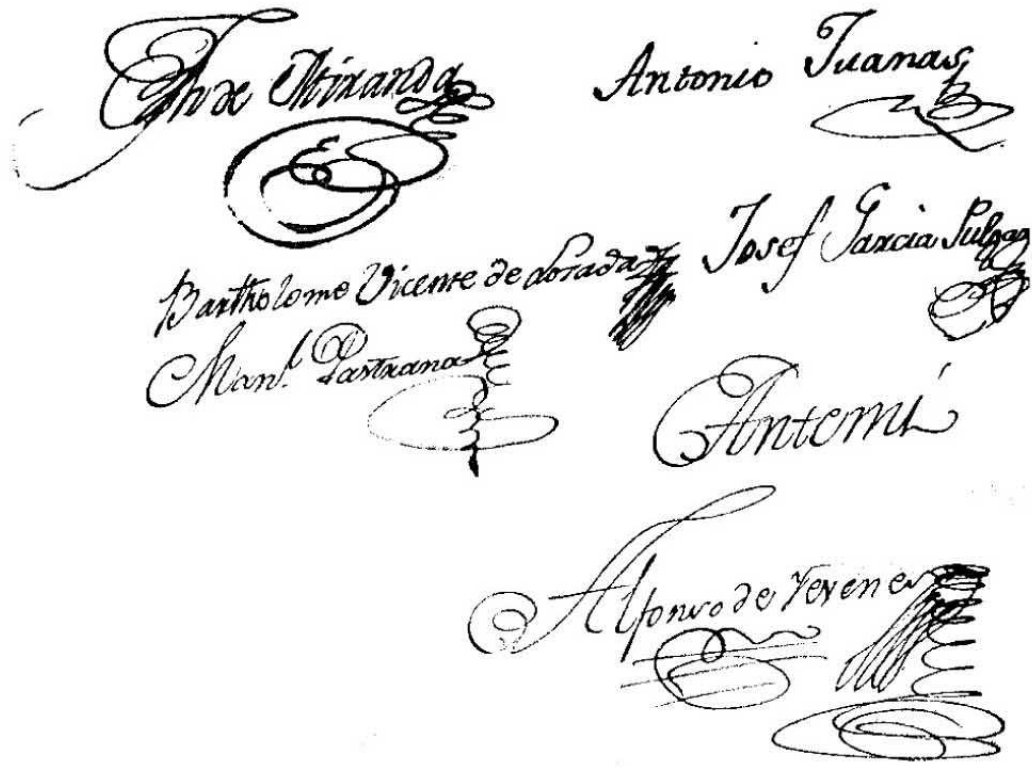 de Miranda
Antonio Juanas
Bartholome Vicente de Losada
Josef Garcia Pulgar
Man.l Pastrana
Antemí
Alfonso de Yevenes